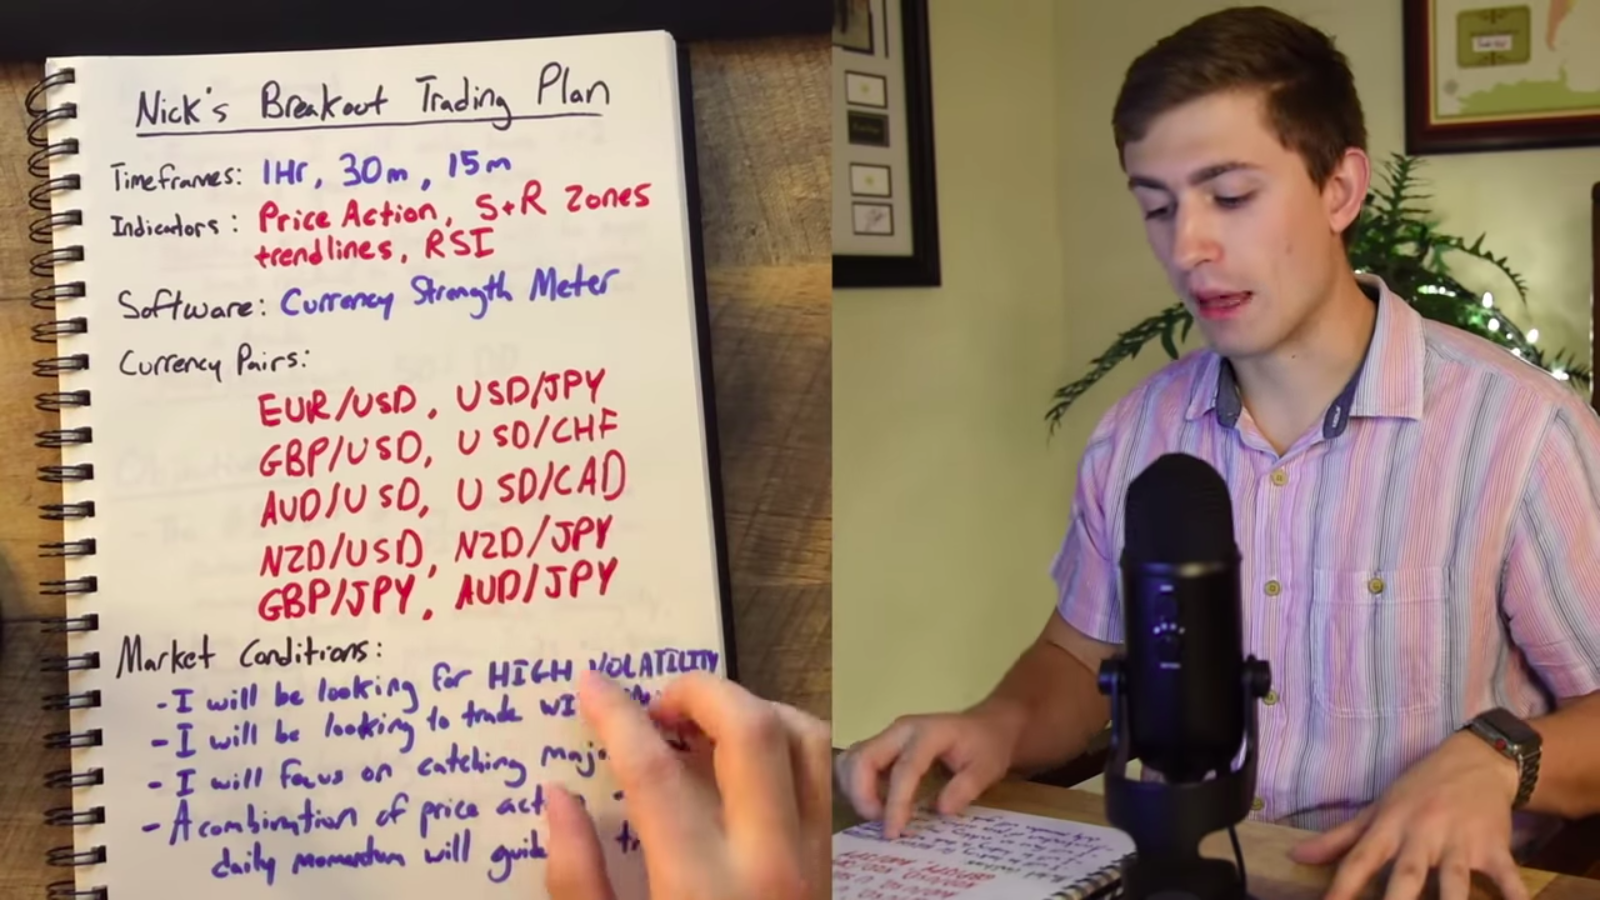 Nick's Breakout Trading Plan
Timeframes: 1Hr, 30m, 15m
Indicators: Price Action, S+R Zones
trendlines, RSI
Software: Currency Strength Meter
Currency Pairs:
EUR/USD, USD/JPY
GBP/USD, USD/CHF
AUD/USD, USD/CAD
NZD/USD, NZD/JPY
GBP/JPY, AUD/JPY
Market Conditions:
- I will be looking for HIGH VOLATILITY
- I will be looking to trade
- I will focus on catching
- A combination of price
daily momentum will